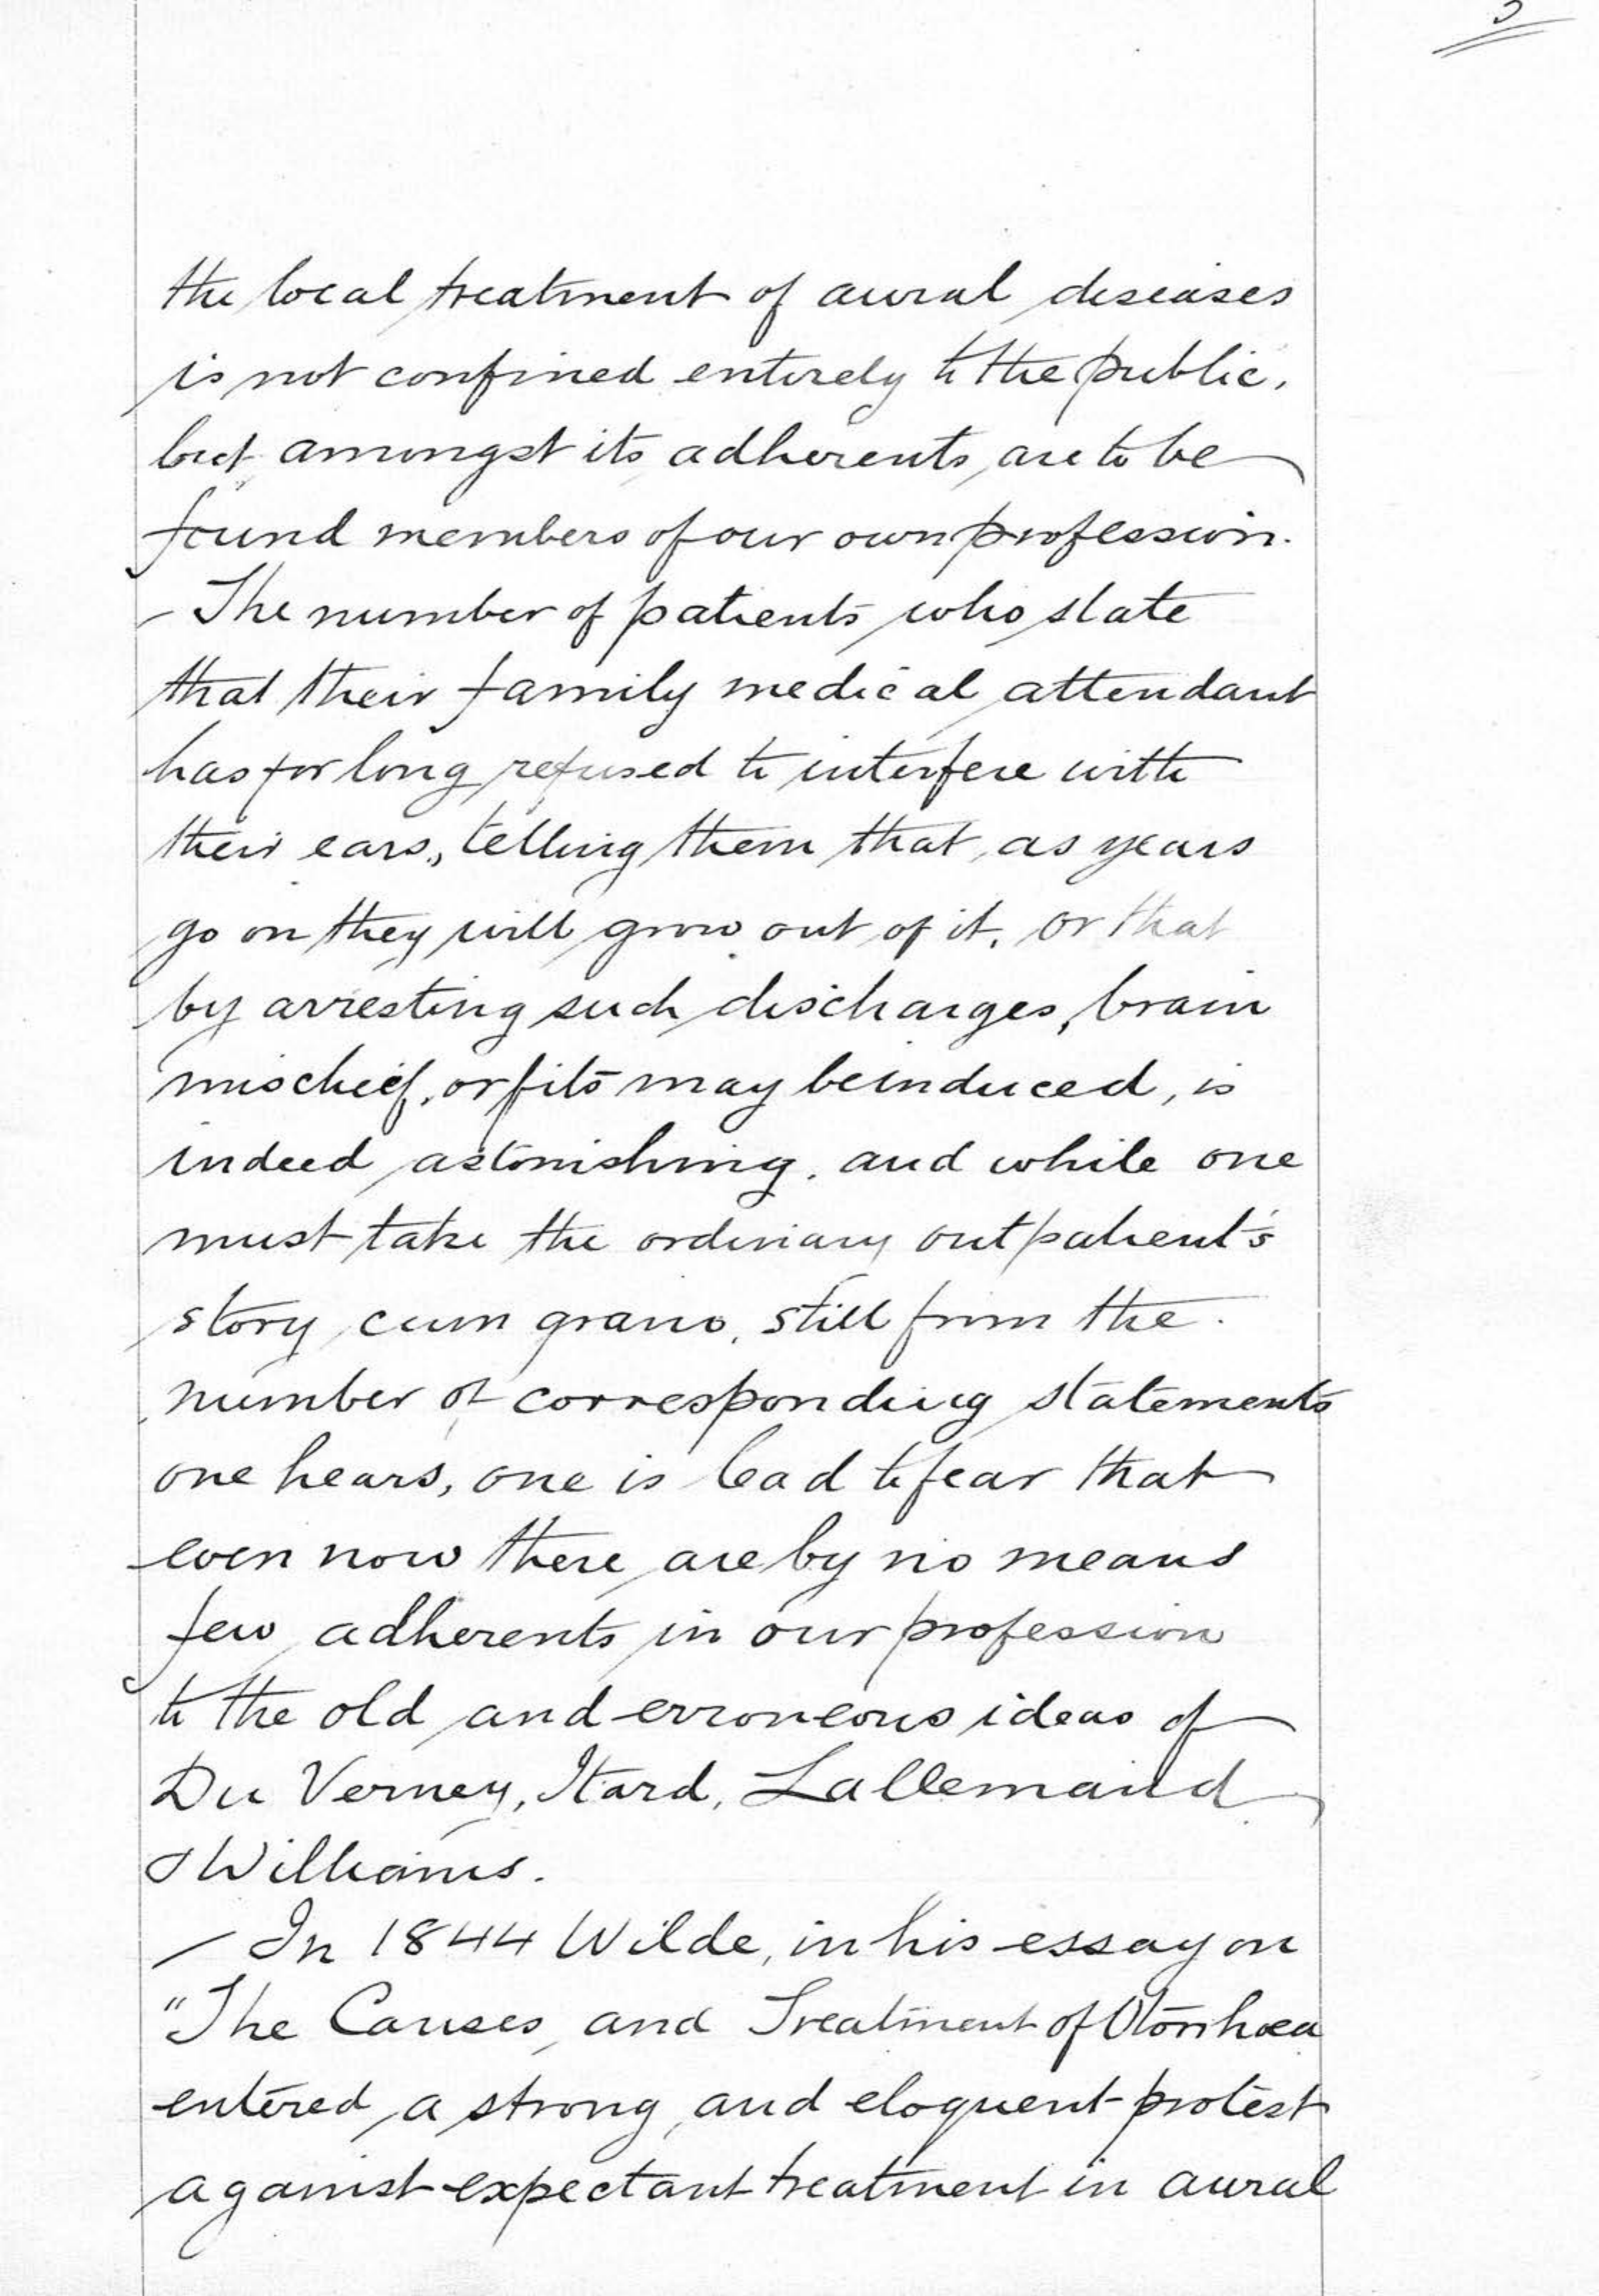 the local treatment of aural diseases
is not confined entirely to the public,
but amongst its adherents are to be
found members of our own profession.
– The number of patients who state
that their family medical attendant
has for long refused to interfere with
their ears, telling them that, as years
go on they will grow out of it, or that
by arresting such discharges, brain
mischeif, or fits may be induced, is
indeed astonishing, and while one
must take the ordinary outpatient's
story cum grano, still from the
number of corresponding statements
one hears, one is lead to fear that
even now there are by no means
few adherents in our profession
to the old and erroneous ideas of
Du Verney, Itard, Lallemand
& Williams.
– In 1844 Wilde, in his essay on
"The Causes and Treatment of Otorrhoea
entered a strong and eloquent protest
against expectant treatment in aural